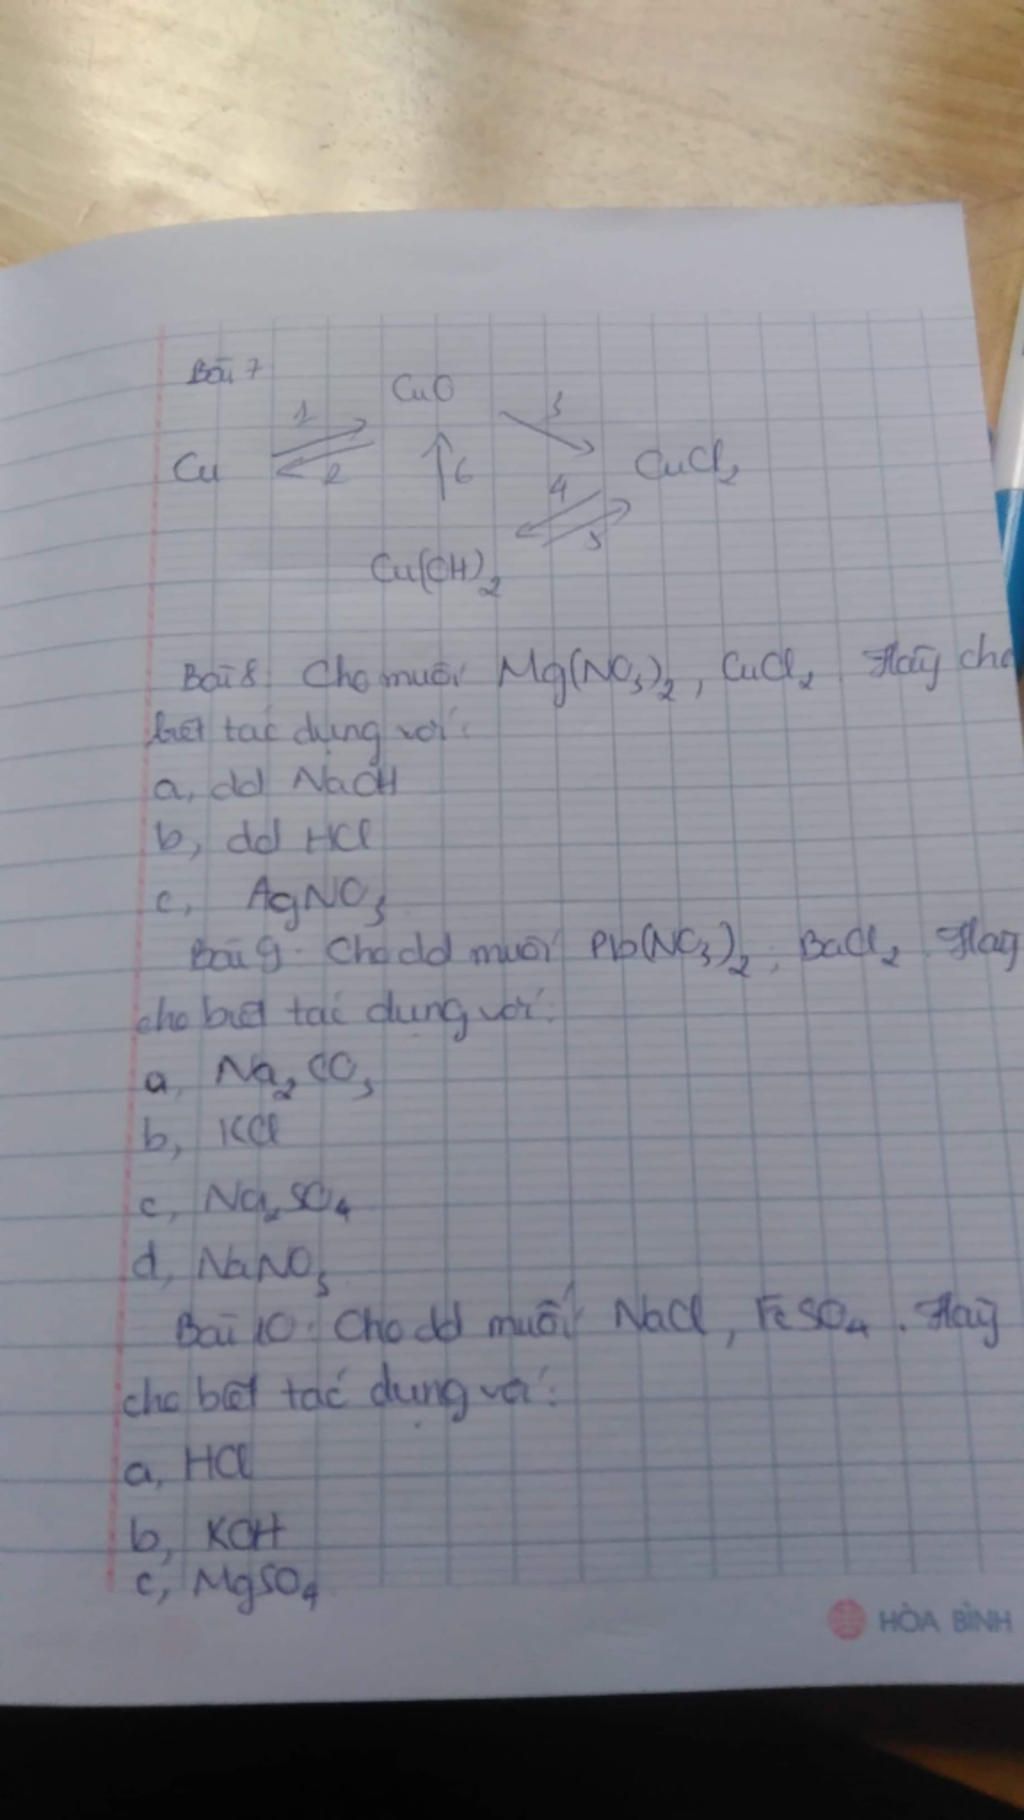 Bài 7
CuO
1
3
Cu
2
6
CuCl2
4
5
Cu(OH)2
Bài 8: Cho muối Mg(NO3)2, CuCl2. Hãy cho
biết tác dụng với:
a, dd NaOH
b, dd HCl
c, AgNO3
Bài 9: Cho dd muối Pb(NO3)2, BaCl2. Hãy
cho biết tác dụng với:
a, Na2CO3
b, KCl
c, Na2SO4
d, NaNO3
Bài 10: Cho dd muối NaCl, FeSO4. Hãy
cho biết tác dụng với:
a, HCl
b, KOH
c, MgSO4
HÒA BÌNH